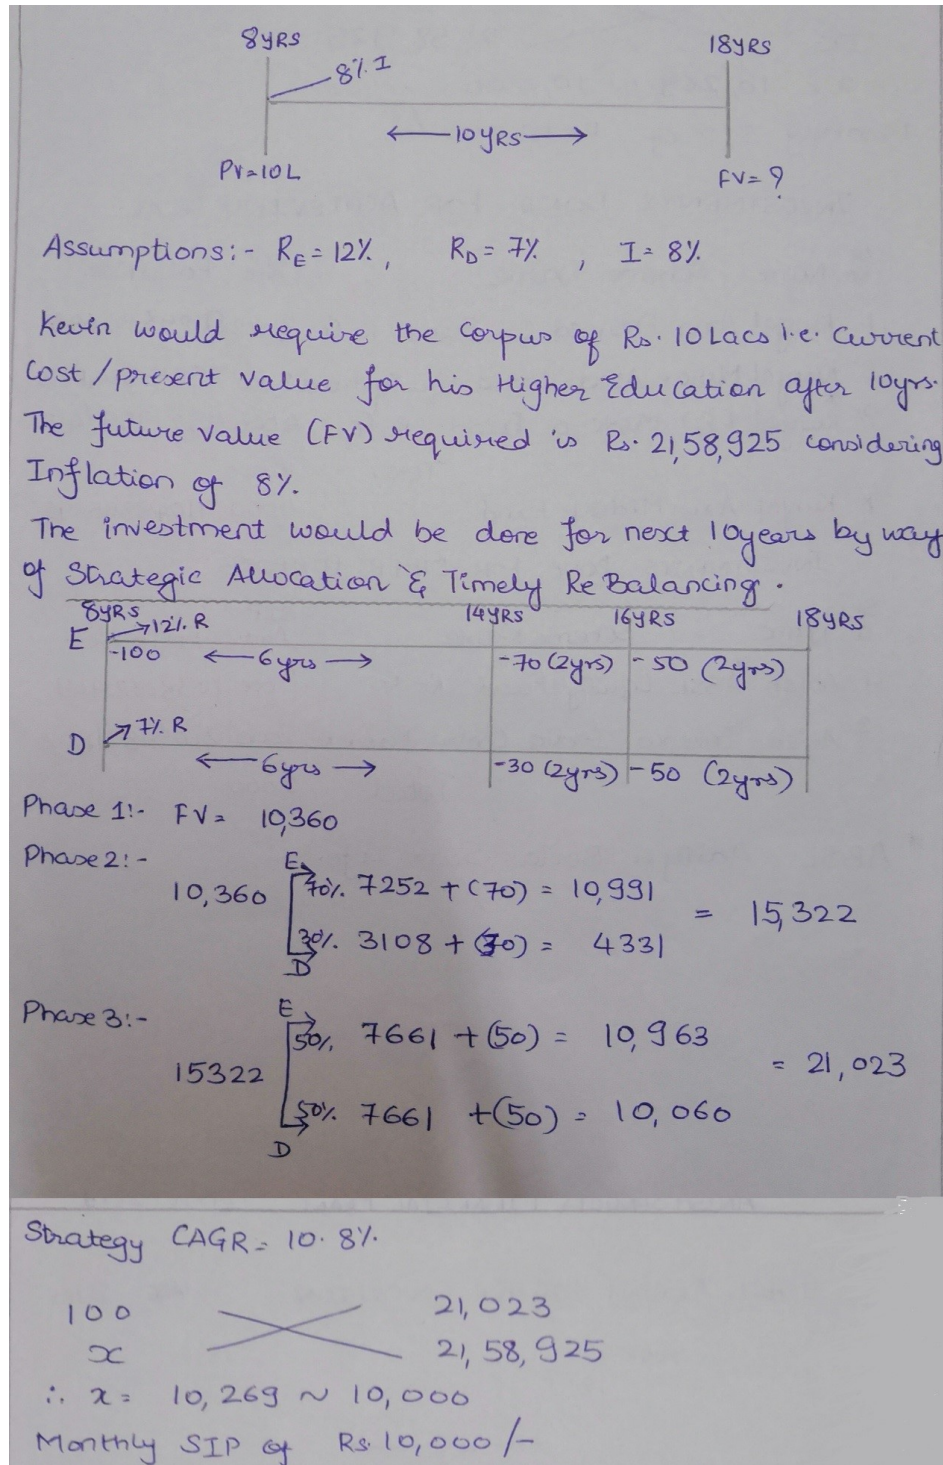 8YRS 18YRS
8% I
←10YRS→
PV=10L FV=?
Assumptions:- RE=12%, RD=7%, I=8%
Kevin would require the corpus of Rs. 10 Lacs i.e. Current
Cost/present value for his Higher Education after 10yrs.
The future value (FV) required is Rs. 21,58,925 considering
Inflation of 8%.
The investment would be done for next 10years by way
of Strategic Allocation & Timely ReBalancing.
8YRS 14YRS 16YRS 18YRS
E 12% R
-100 ←6yrs→ -70(2yrs) -50 (2yrs)
D 7% R
←6yrs→ -30(2yrs) -50 (2yrs)
Phase 1:- FV= 10,360
Phase 2:- E
10,360 70% 7252 + (70) = 10,991 = 15,322
30% 3108 + (30) = 4331
D
Phase 3:- E
50% 7661 + (50) = 10,963
15322 = 21,023
50% 7661 + (50) = 10,060
D
Strategy CAGR = 10.8%.
100 21,023
x 21,58,925
∴ x = 10,269 ~ 10,000
Monthly SIP of Rs. 10,000/-